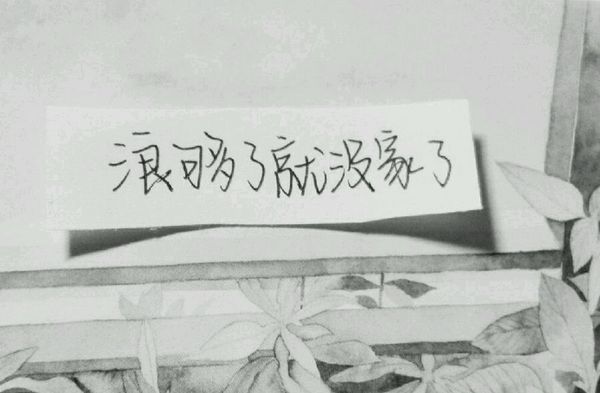 浪够了就没家了